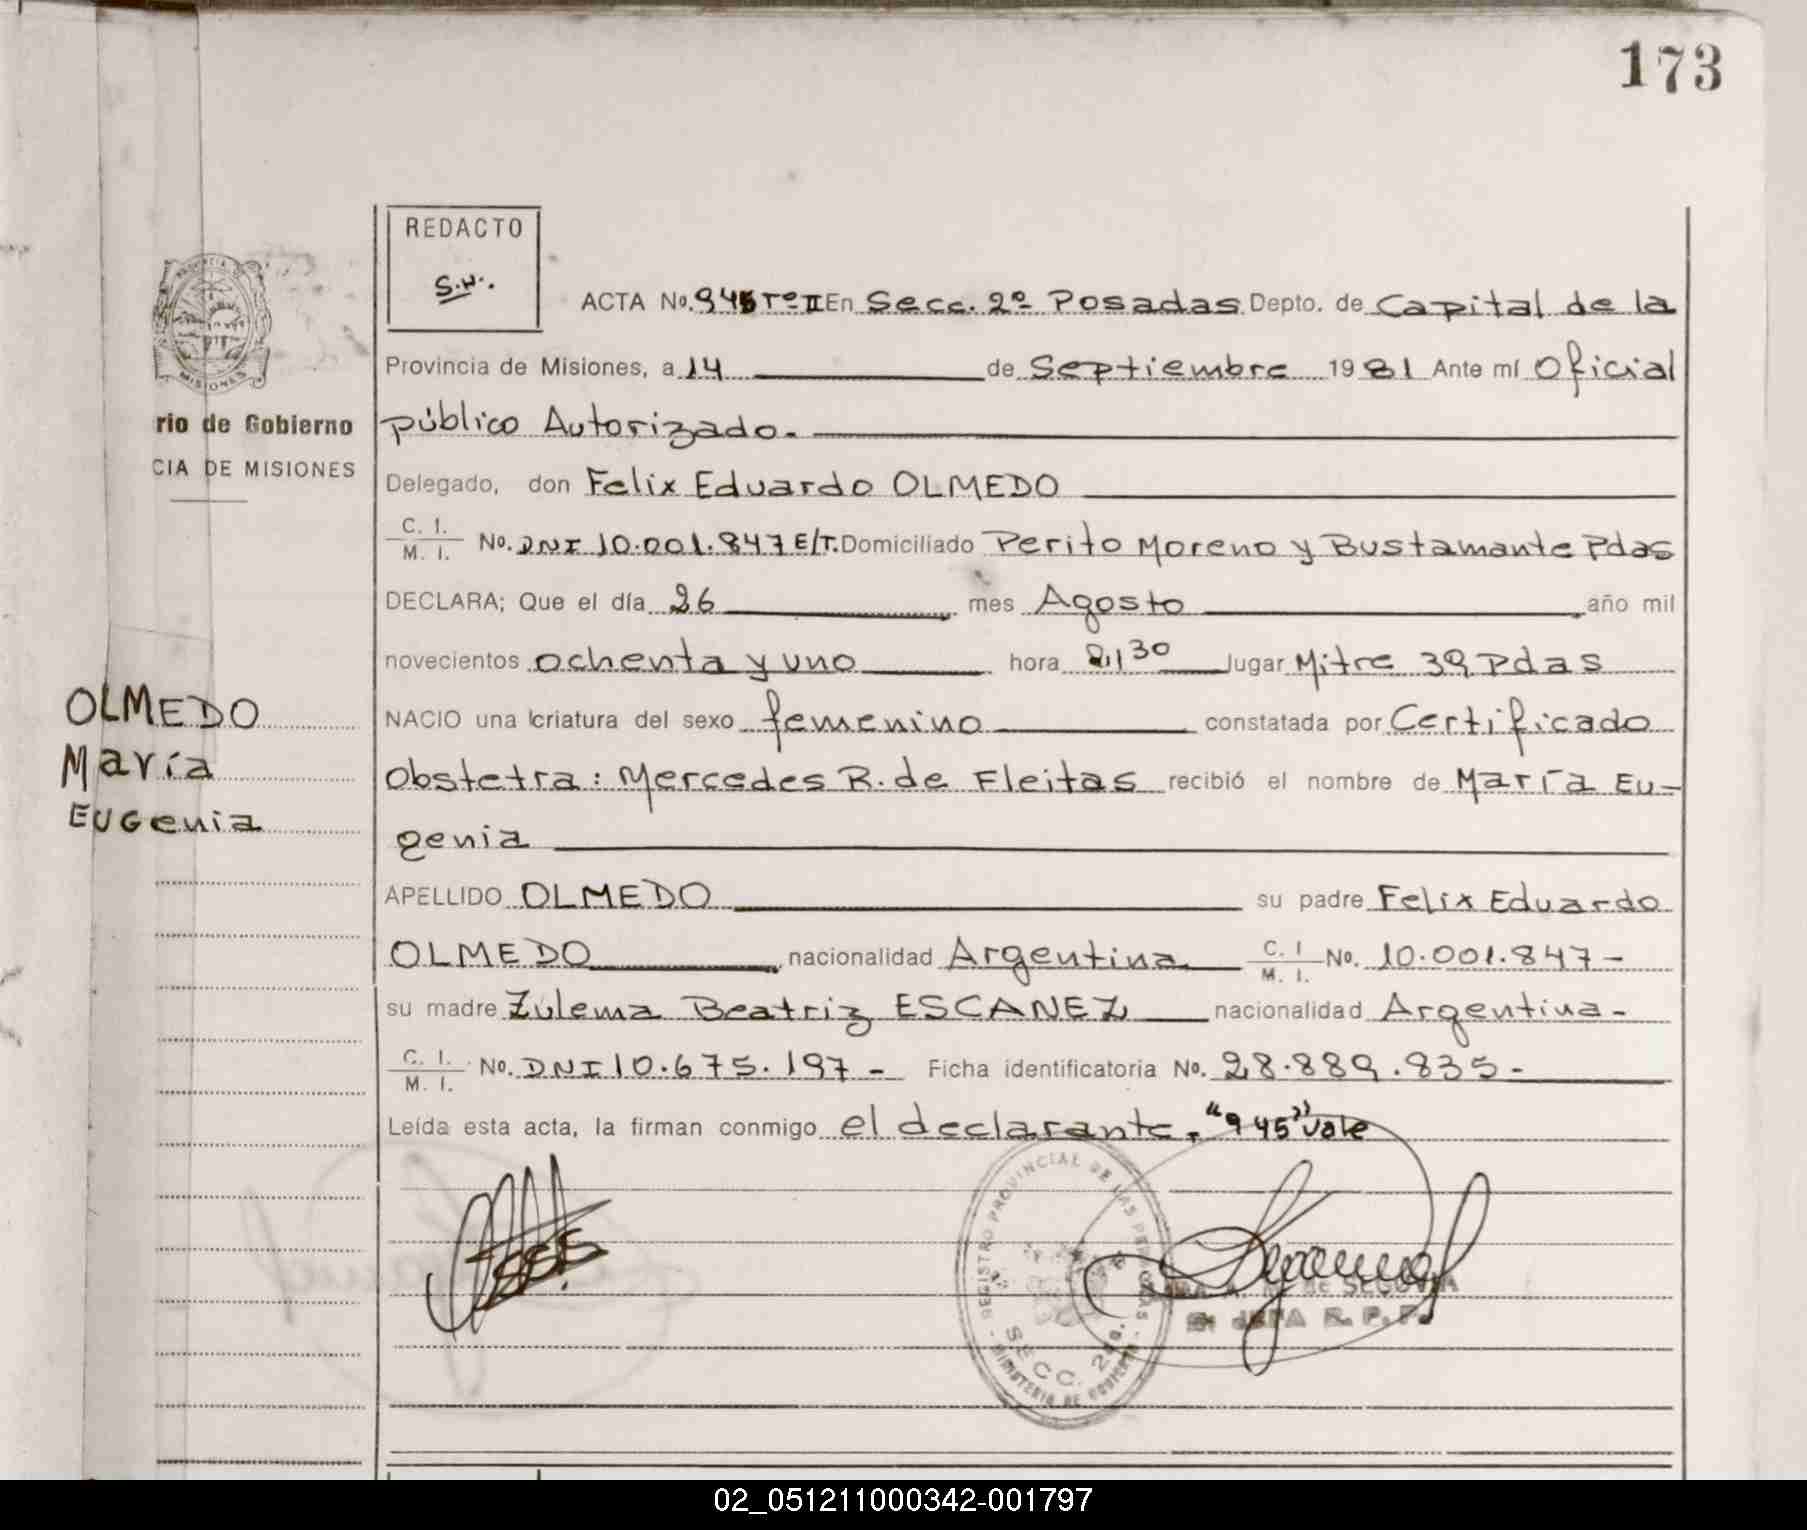 173
REDACTO
S.H.
ACTA No. 945 Tº II En Secc. 2º Posadas Depto. de Capital de la
Provincia de Misiones, a 14 de Septiembre 1981 Ante mí Oficial
rio de Gobierno
público Autorizado.
CIA DE MISIONES
Delegado, don Felix Eduardo OLMEDO
C. I. / M. I. No. DNI 10.001.847 E/T. Domiciliado Perito Moreno y Bustamante Pdas
DECLARA; Que el día 26 mes Agosto año mil
novecientos ochenta y uno hora lugar Mitre 39 Pdas
OLMEDO
María
EUGenia
NACIO una criatura del sexo femenino constatada por Certificado
Obstetra: Mercedes R. de Fleitas recibió el nombre de María Eu-
genia
APELLIDO OLMEDO su padre Felix Eduardo
OLMEDO nacionalidad Argentina C. I / M. I. No. 10.001.847 -
su madre Zulema Beatriz ESCANEZ nacionalidad Argentina -
C. I. / M. I. No. DNI 10.675.197 - Ficha identificatoria No. 28.889.835 -
Leída esta acta, la firman conmigo el declarante. "945" vale
REGISTRO PROVINCIAL DE LAS PERSONAS
SECC. 2da.
MINISTERIO DE GOBIERNO
de SEGOVIA
JEFA R. P. P.
PROVINCIA DE
MISIONES
02_051211000342-001797